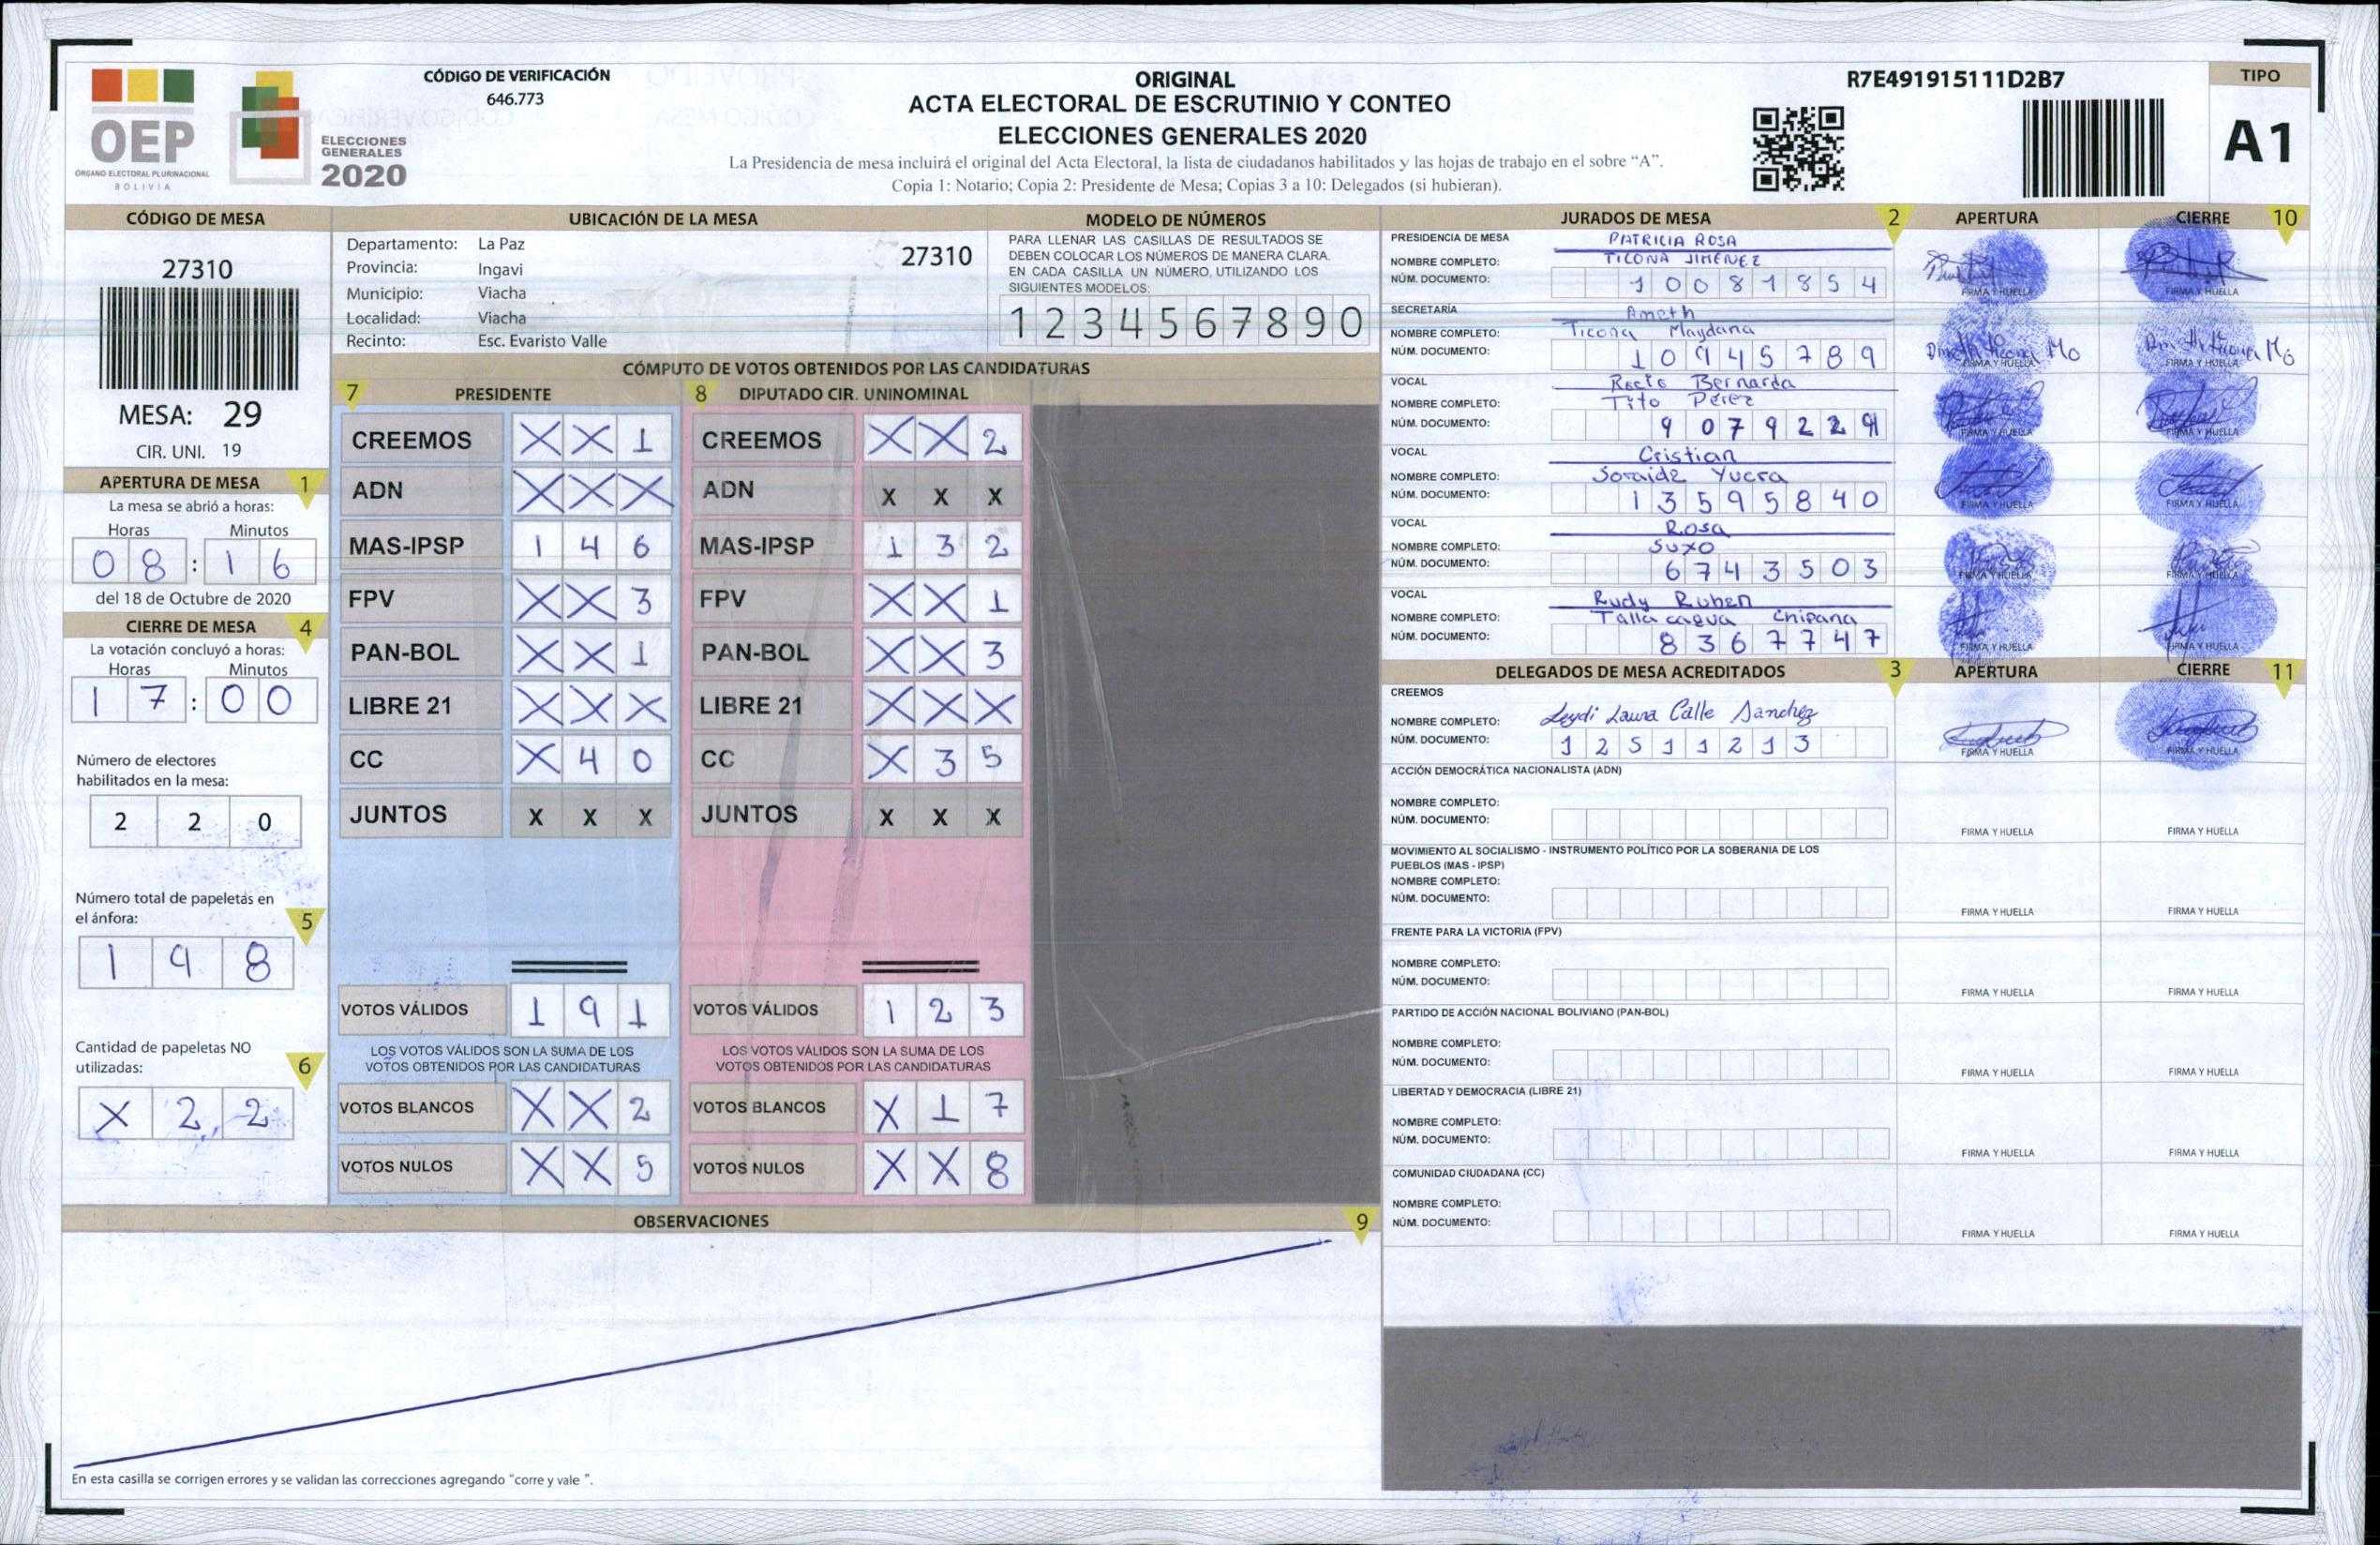 OEP
ÓRGANO ELECTORAL PLURINACIONAL
BOLIVIA
ELECCIONES
GENERALES
2020
CÓDIGO DE VERIFICACIÓN
646.773
ORIGINAL
ACTA ELECTORAL DE ESCRUTINIO Y CONTEO
ELECCIONES GENERALES 2020
La Presidencia de mesa incluirá el original del Acta Electoral, la lista de ciudadanos habilitados y las hojas de trabajo en el sobre “A”.
Copia 1: Notario; Copia 2: Presidente de Mesa; Copias 3 a 10: Delegados (si hubieran).
R7E491915111D2B7
TIPO
A1
CÓDIGO DE MESA
27310
MESA: 29
CIR. UNI. 19
APERTURA DE MESA 1
La mesa se abrió a horas:
Horas Minutos
08:16
del 18 de Octubre de 2020
CIERRE DE MESA 4
La votación concluyó a horas:
Horas Minutos
17:00
Número de electores
habilitados en la mesa:
2 2 0
Número total de papeletas en
el ánfora: 5
1 9 8
Cantidad de papeletas NO
utilizadas: 6
X 2 2
UBICACIÓN DE LA MESA
Departamento: La Paz
Provincia: Ingavi
Municipio: Viacha
Localidad: Viacha
Recinto: Esc. Evaristo Valle
27310
MODELO DE NÚMEROS
PARA LLENAR LAS CASILLAS DE RESULTADOS SE
DEBEN COLOCAR LOS NÚMEROS DE MANERA CLARA.
EN CADA CASILLA UN NÚMERO, UTILIZANDO LOS
SIGUIENTES MODELOS:
1 2 3 4 5 6 7 8 9 0
CÓMPUTO DE VOTOS OBTENIDOS POR LAS CANDIDATURAS
7 PRESIDENTE 8 DIPUTADO CIR. UNINOMINAL
CREEMOS X X 1 CREEMOS X X 2
ADN X X X ADN X X X
MAS-IPSP 1 4 6 MAS-IPSP 1 3 2
FPV X X 3 FPV X X 1
PAN-BOL X X 1 PAN-BOL X X 3
LIBRE 21 X X X LIBRE 21 X X X
CC X 4 0 CC X 3 5
JUNTOS X X X JUNTOS X X X
VOTOS VÁLIDOS 1 9 1 VOTOS VÁLIDOS 1 2 3
LOS VOTOS VÁLIDOS SON LA SUMA DE LOS LOS VOTOS VÁLIDOS SON LA SUMA DE LOS
VOTOS OBTENIDOS POR LAS CANDIDATURAS VOTOS OBTENIDOS POR LAS CANDIDATURAS
VOTOS BLANCOS X X 2 VOTOS BLANCOS X 1 7
VOTOS NULOS X X 5 VOTOS NULOS X X 8
OBSERVACIONES 9
En esta casilla se corrigen errores y se validan las correcciones agregando “corre y vale ”.
JURADOS DE MESA 2 APERTURA CIERRE 10
PRESIDENCIA DE MESA PATRICIA ROSA
NOMBRE COMPLETO: TICONA JIMENEZ
NÚM. DOCUMENTO: 10081854
FIRMA Y HUELLA FIRMA Y HUELLA
SECRETARÍA Ameth
NOMBRE COMPLETO: Ticona Maydana
NÚM. DOCUMENTO: 10945789
FIRMA Y HUELLA FIRMA Y HUELLA
VOCAL Rocio Bernarda
NOMBRE COMPLETO: Tito Pérez
NÚM. DOCUMENTO: 9079229
FIRMA Y HUELLA FIRMA Y HUELLA
VOCAL Cristian
NOMBRE COMPLETO: Soraide Yucra
NÚM. DOCUMENTO: 13595840
FIRMA Y HUELLA FIRMA Y HUELLA
VOCAL Rosa
NOMBRE COMPLETO: Suxo
NÚM. DOCUMENTO: 6743503
FIRMA Y HUELLA FIRMA Y HUELLA
VOCAL Rudy Ruben
NOMBRE COMPLETO: Tallacagua Chipana
NÚM. DOCUMENTO: 8367747
FIRMA Y HUELLA FIRMA Y HUELLA
DELEGADOS DE MESA ACREDITADOS 3 APERTURA CIERRE 11
CREEMOS
NOMBRE COMPLETO: Leydi Laura Calle Sanchez
NÚM. DOCUMENTO: 12511213
FIRMA Y HUELLA FIRMA Y HUELLA
ACCIÓN DEMOCRÁTICA NACIONALISTA (ADN)
NOMBRE COMPLETO:
NÚM. DOCUMENTO:
FIRMA Y HUELLA FIRMA Y HUELLA
MOVIMIENTO AL SOCIALISMO - INSTRUMENTO POLÍTICO POR LA SOBERANIA DE LOS
PUEBLOS (MAS - IPSP)
NOMBRE COMPLETO:
NÚM. DOCUMENTO:
FIRMA Y HUELLA FIRMA Y HUELLA
FRENTE PARA LA VICTORIA (FPV)
NOMBRE COMPLETO:
NÚM. DOCUMENTO:
FIRMA Y HUELLA FIRMA Y HUELLA
PARTIDO DE ACCIÓN NACIONAL BOLIVIANO (PAN-BOL)
NOMBRE COMPLETO:
NÚM. DOCUMENTO:
FIRMA Y HUELLA FIRMA Y HUELLA
LIBERTAD Y DEMOCRACIA (LIBRE 21)
NOMBRE COMPLETO:
NÚM. DOCUMENTO:
FIRMA Y HUELLA FIRMA Y HUELLA
COMUNIDAD CIUDADANA (CC)
NOMBRE COMPLETO:
NÚM. DOCUMENTO:
FIRMA Y HUELLA FIRMA Y HUELLA